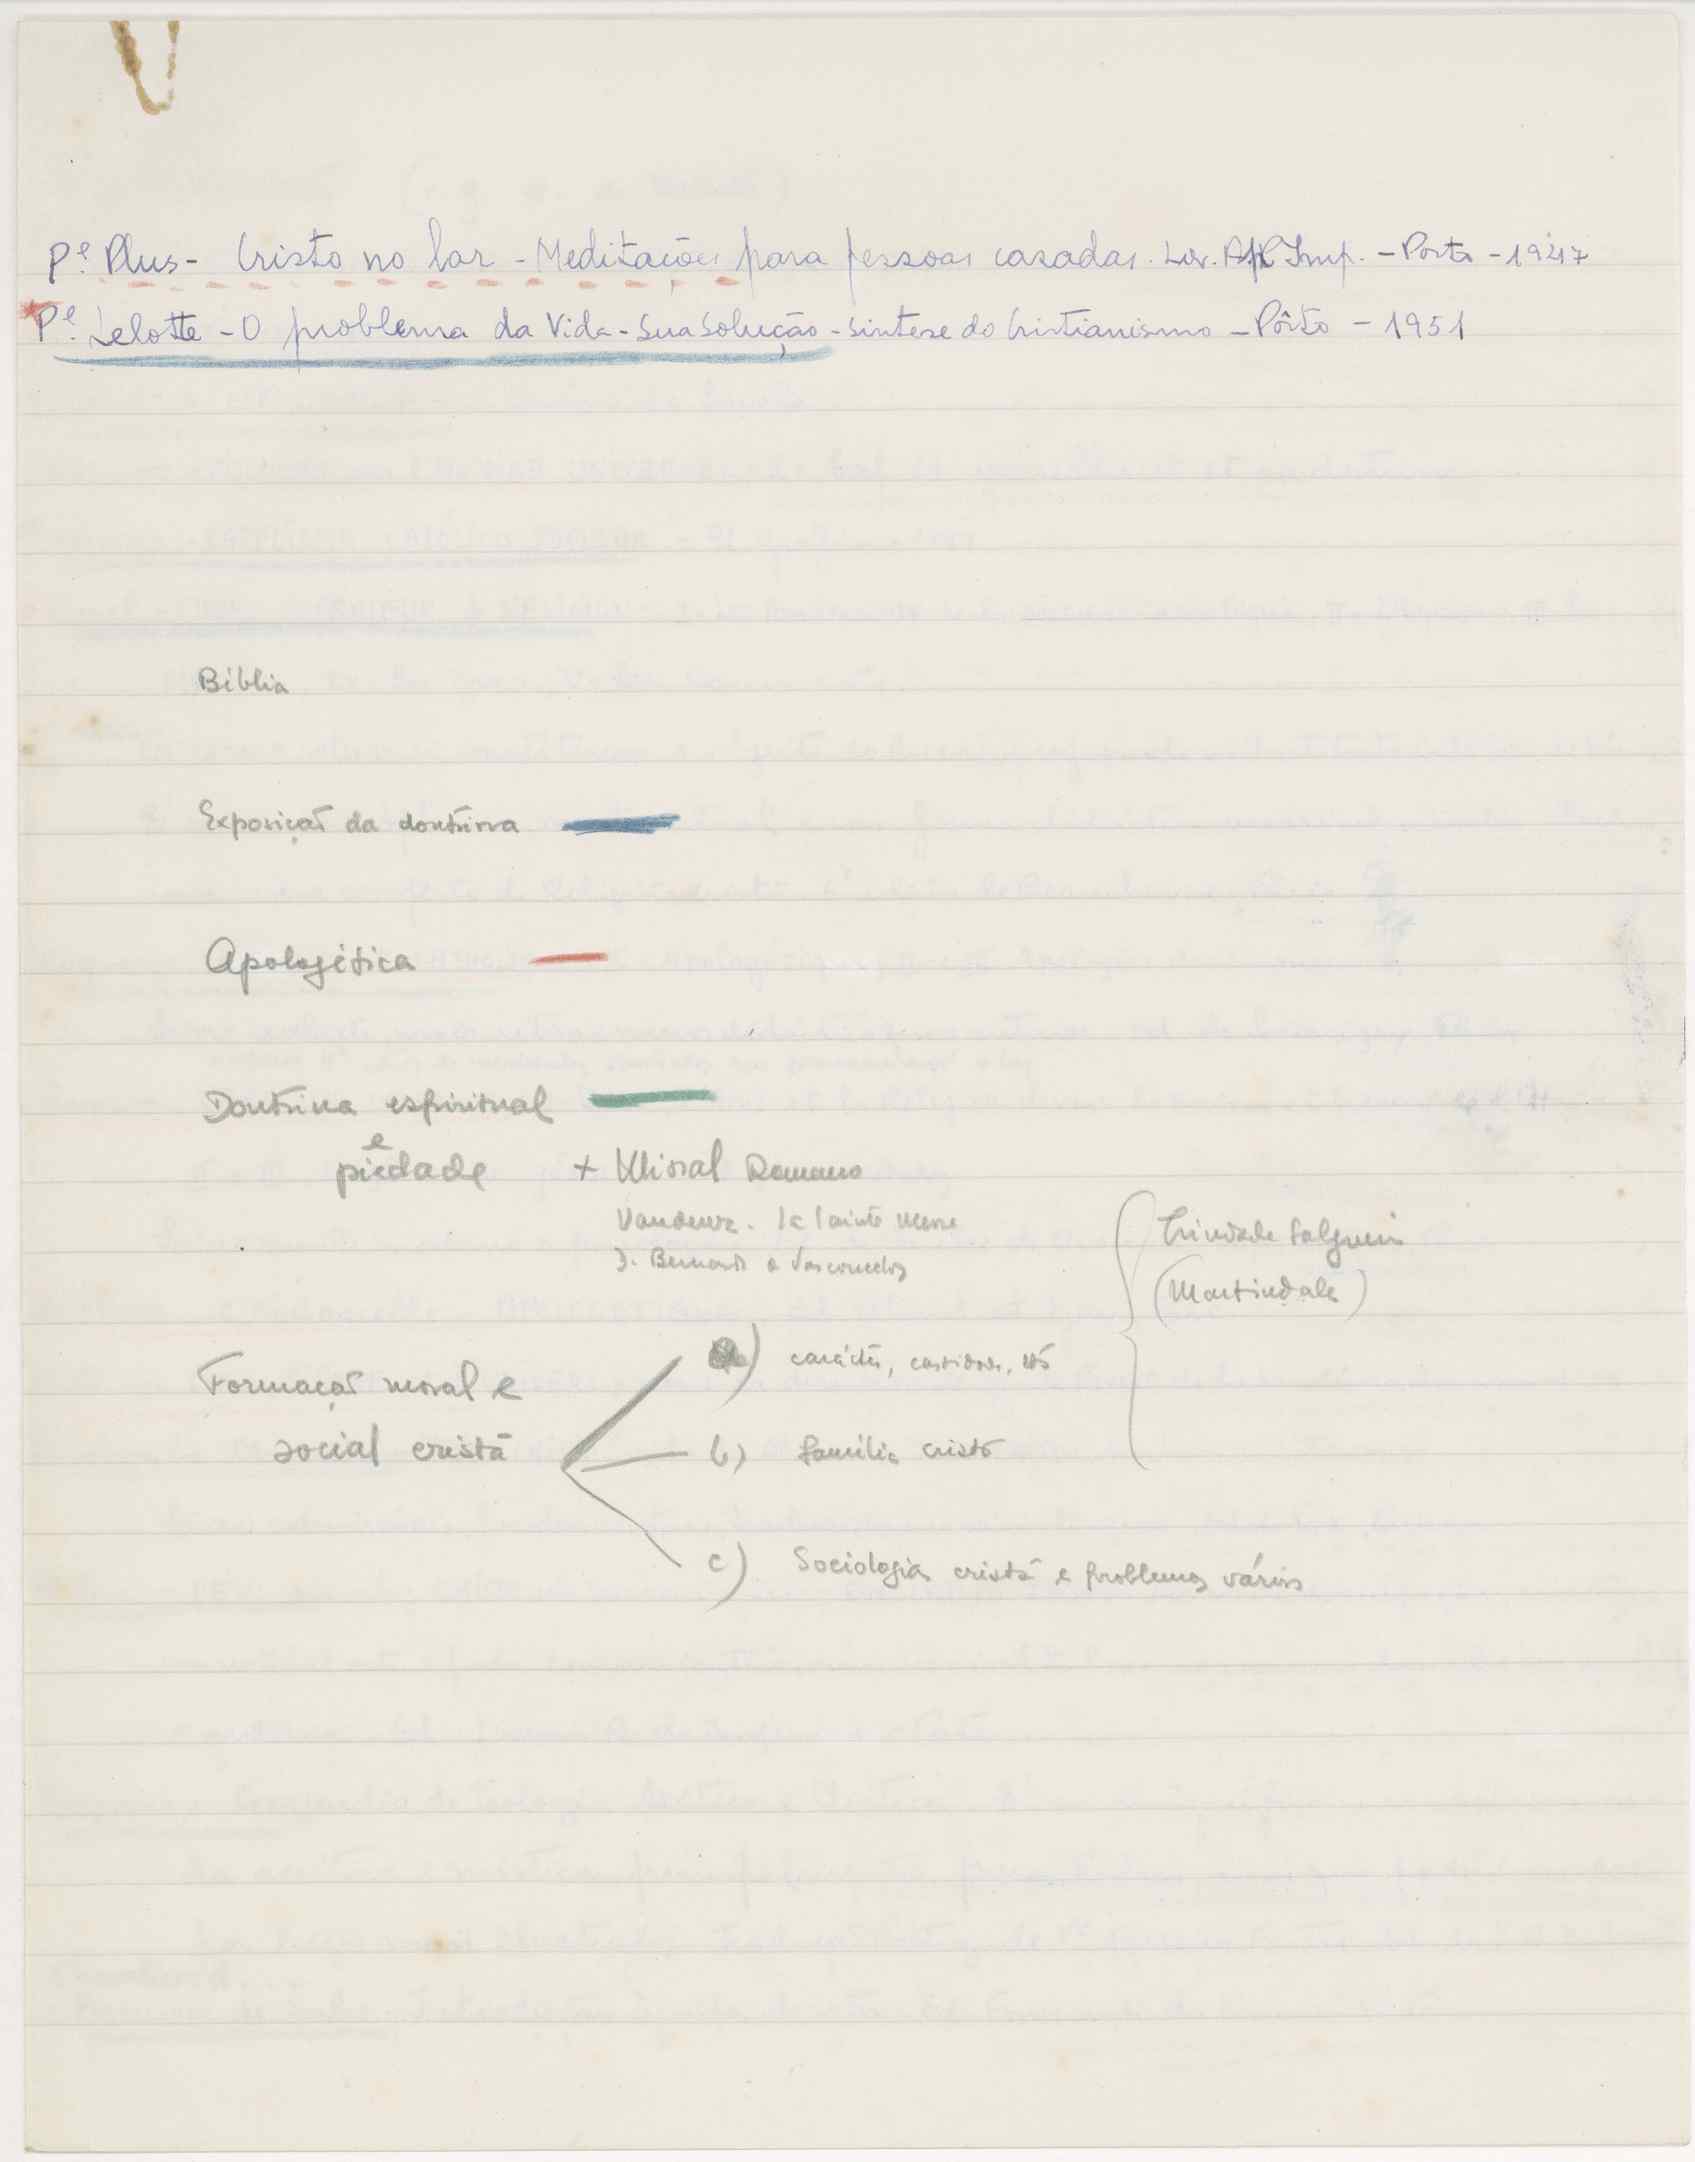 Pe. Plus - Cristo no lar - Meditações para pessoas casadas. Liv. Ap. Imp. - Porto - 1947
Pe. Lelotte - O problema da Vida - Sua Solução - Sintese do Cristianismo - Pôrto - 1951
Bíblia
Exposição da doutrina
Apologética
Doutrina espiritual
e
piedade + Missal Romano
Vandeur. La Sainte Messe
D. Bernardo a Vasconcelos
Trindade Salgueiro
(Martindale)
Formação moral e
social cristã
a) carácter, castidade,
b) família cristã
c) Sociologia cristã e problemas vários